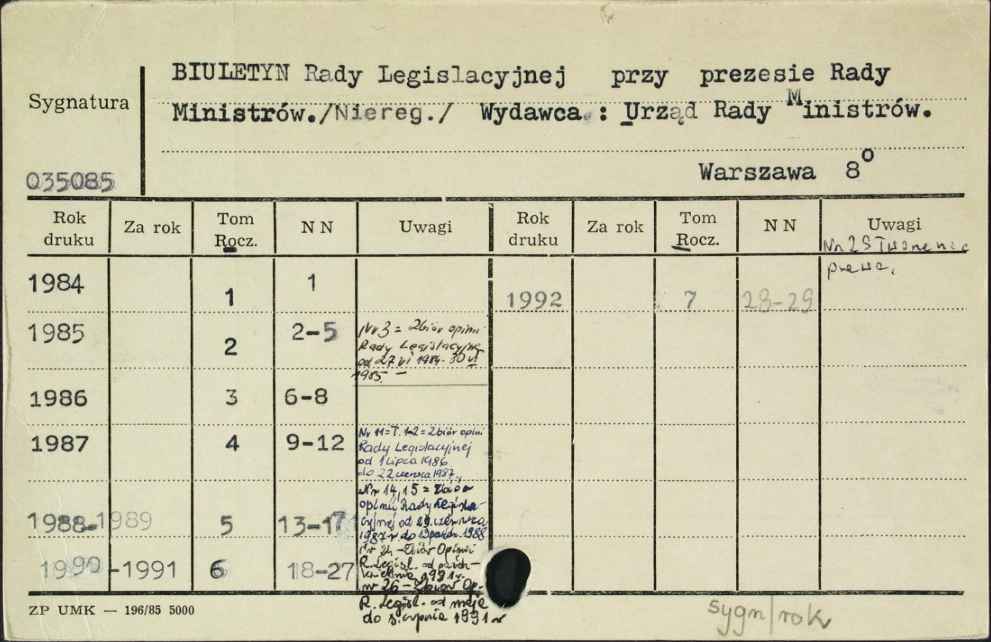 BIULETYN Rady Legislacyjnej przy prezesie Rady
Sygnatura
Ministrów./Niereg./ Wydawca.: Urząd Rady Ministrów.
Warszawa 8°
035085
Rok druku Za rok Tom Rocz. NN Uwagi Rok druku Za rok Tom Rocz. NN Uwagi
Nr 28 Tworzenie
prawa.
1984 1 1
1992 7 28-29
1985 2 2-5
Nr 3 = Zbiór opinii
Rady Legislacyjnej
od 27 VI 1984 - 30 VI
1985. —
1986 3 6-8
1987 4 9-12
Nr 11=T.1-2=Zbiór opinii
Rady Legislacyjnej
od 1 lipca 1986
do 22 czerwca 1987.
Nr 14,15 = Zbiór
opinii Rady Legisla-
cyjnej od 29 czerwca
1987 r do 1988
1988-1989 5 13-17
1990-1991 6 18-27
Nr 24 - Zbiór Opinii
R. Legisl. od
1991 r.
nr 26 - Zbiór Op.
R. Legisl. od maja
do sierpnia 1991 r
ZP UMK — 196/85 5000
sygn/rok